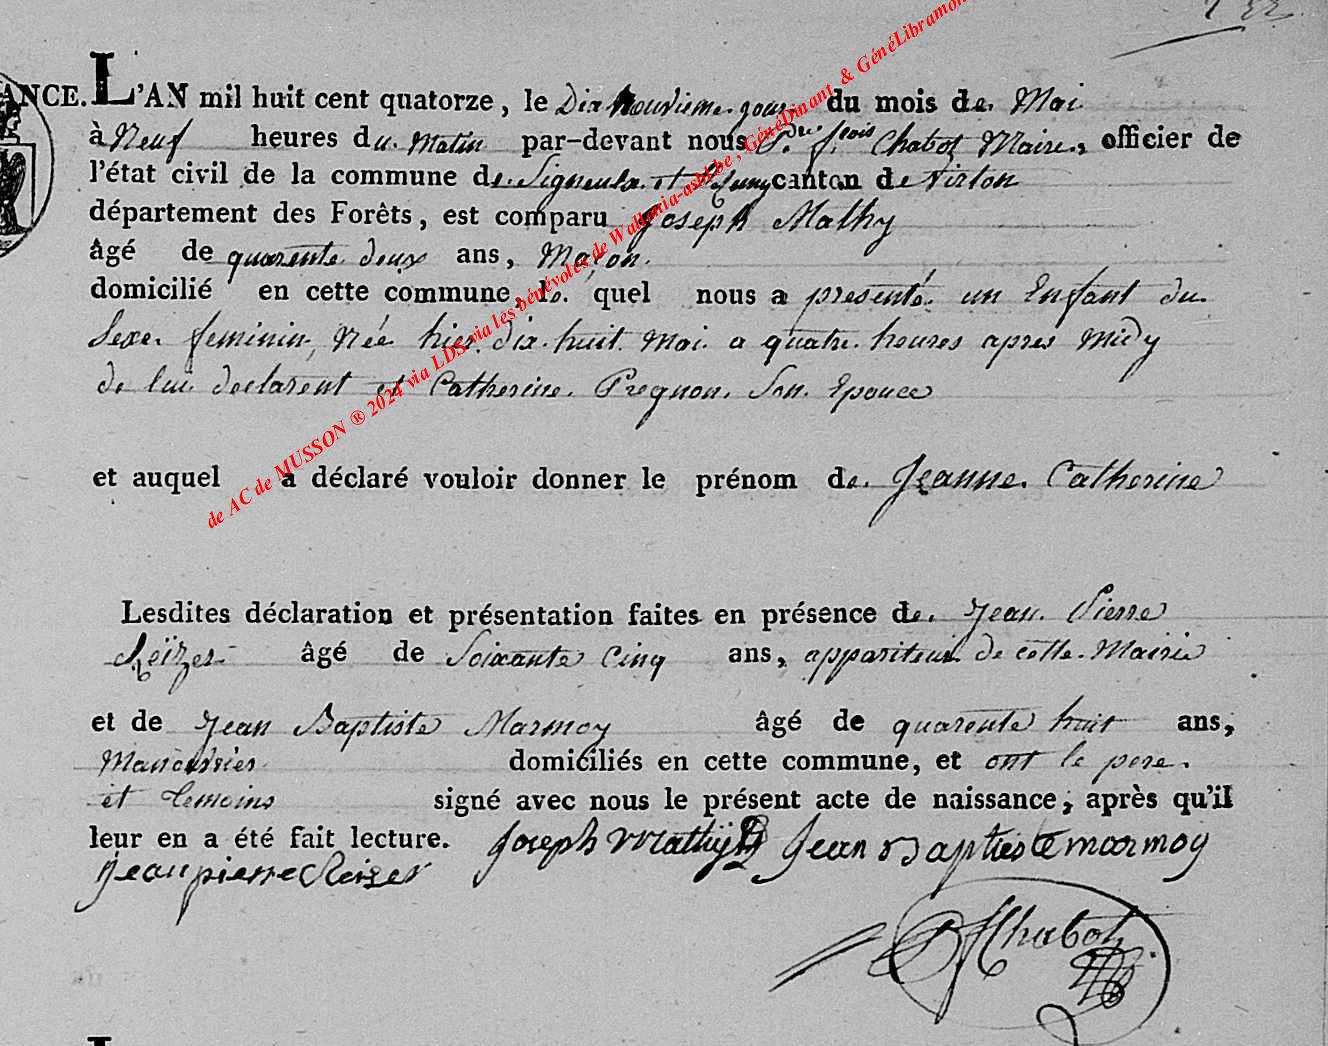 ANCE. L'AN mil huit cent quatorze, le Dix Neuvieme jour du mois de Mai
à Neuf heures du Matin par-devant nous P.re f.cois Chabot Maire, officier de
l'état civil de la commune de Signeulx et canton de Virton
département des Forêts, est comparu Joseph Mathy
âgé de quarente deux ans, Maçon.
domicilié en cette commune, le quel nous a presenté un Enfant du
Sexe feminin, Née hier dix huit Mai a quatre heures apres Midy
de lui declarent et Catherine Pregnon Son Epouce
et auquel a déclaré vouloir donner le prénom de Jeanne Catherine
Lesdites déclaration et présentation faites en présence de Jean Pierre
Reïzer âgé de Soixante Cinq ans, appariteur de cette Mairie
et de Jean Baptiste Marmoy âgé de quarente huit ans,
Manouvrier domiciliés en cette commune, et ont le pere
et temoins signé avec nous le présent acte de naissance, après qu'il
leur en a été fait lecture. Joseph Mathÿ Jean Baptiste marmoy
Jean pierre Reizer
PfChabot
de AC de MUSSON ® 2024 via LDS via les bénévoles de Wallonia-asbl.be, GénéDinant, & GénéLibramon